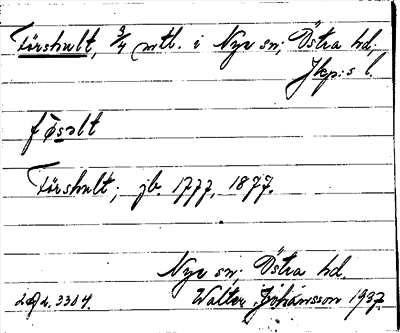 Förshult, 3/4 mtl. i Nye sn; Östra hd,
Jkp:s l.
fø̀sɔlt
Förshult; jb. 1777, 1877.
Nye sn; Östra hd.
Walter Johansson 1937.